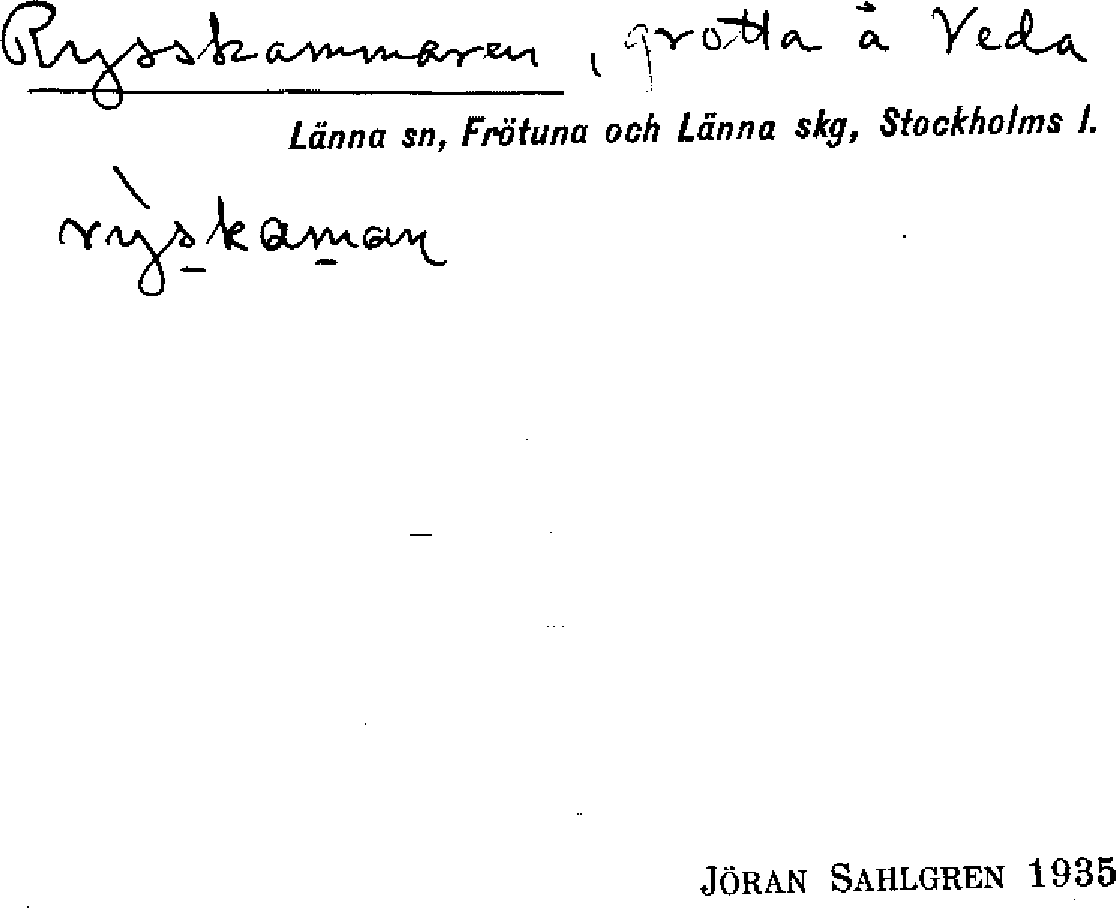 Rysskammaren, grotta å Veda
Länna sn, Frötuna och Länna skg, Stockholms l.
rỳskaman
JÖRAN SAHLGREN 1935